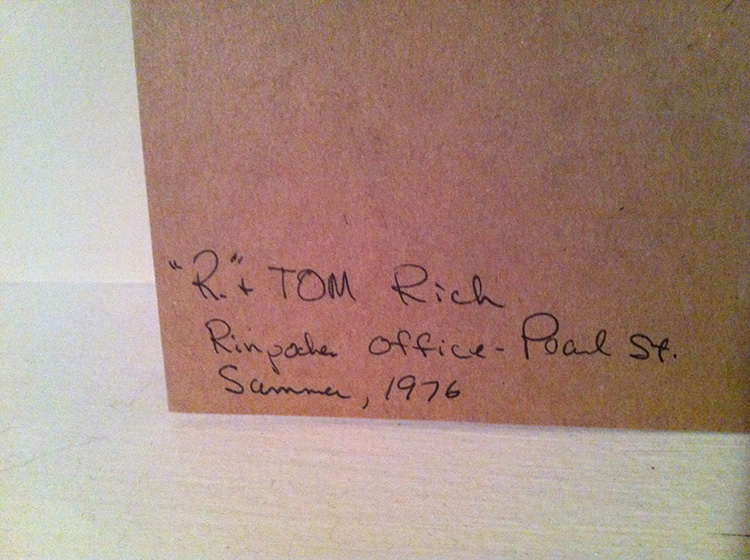 "R." + TOM Rich
Rinpoches office - Pearl St.
Summer, 1976